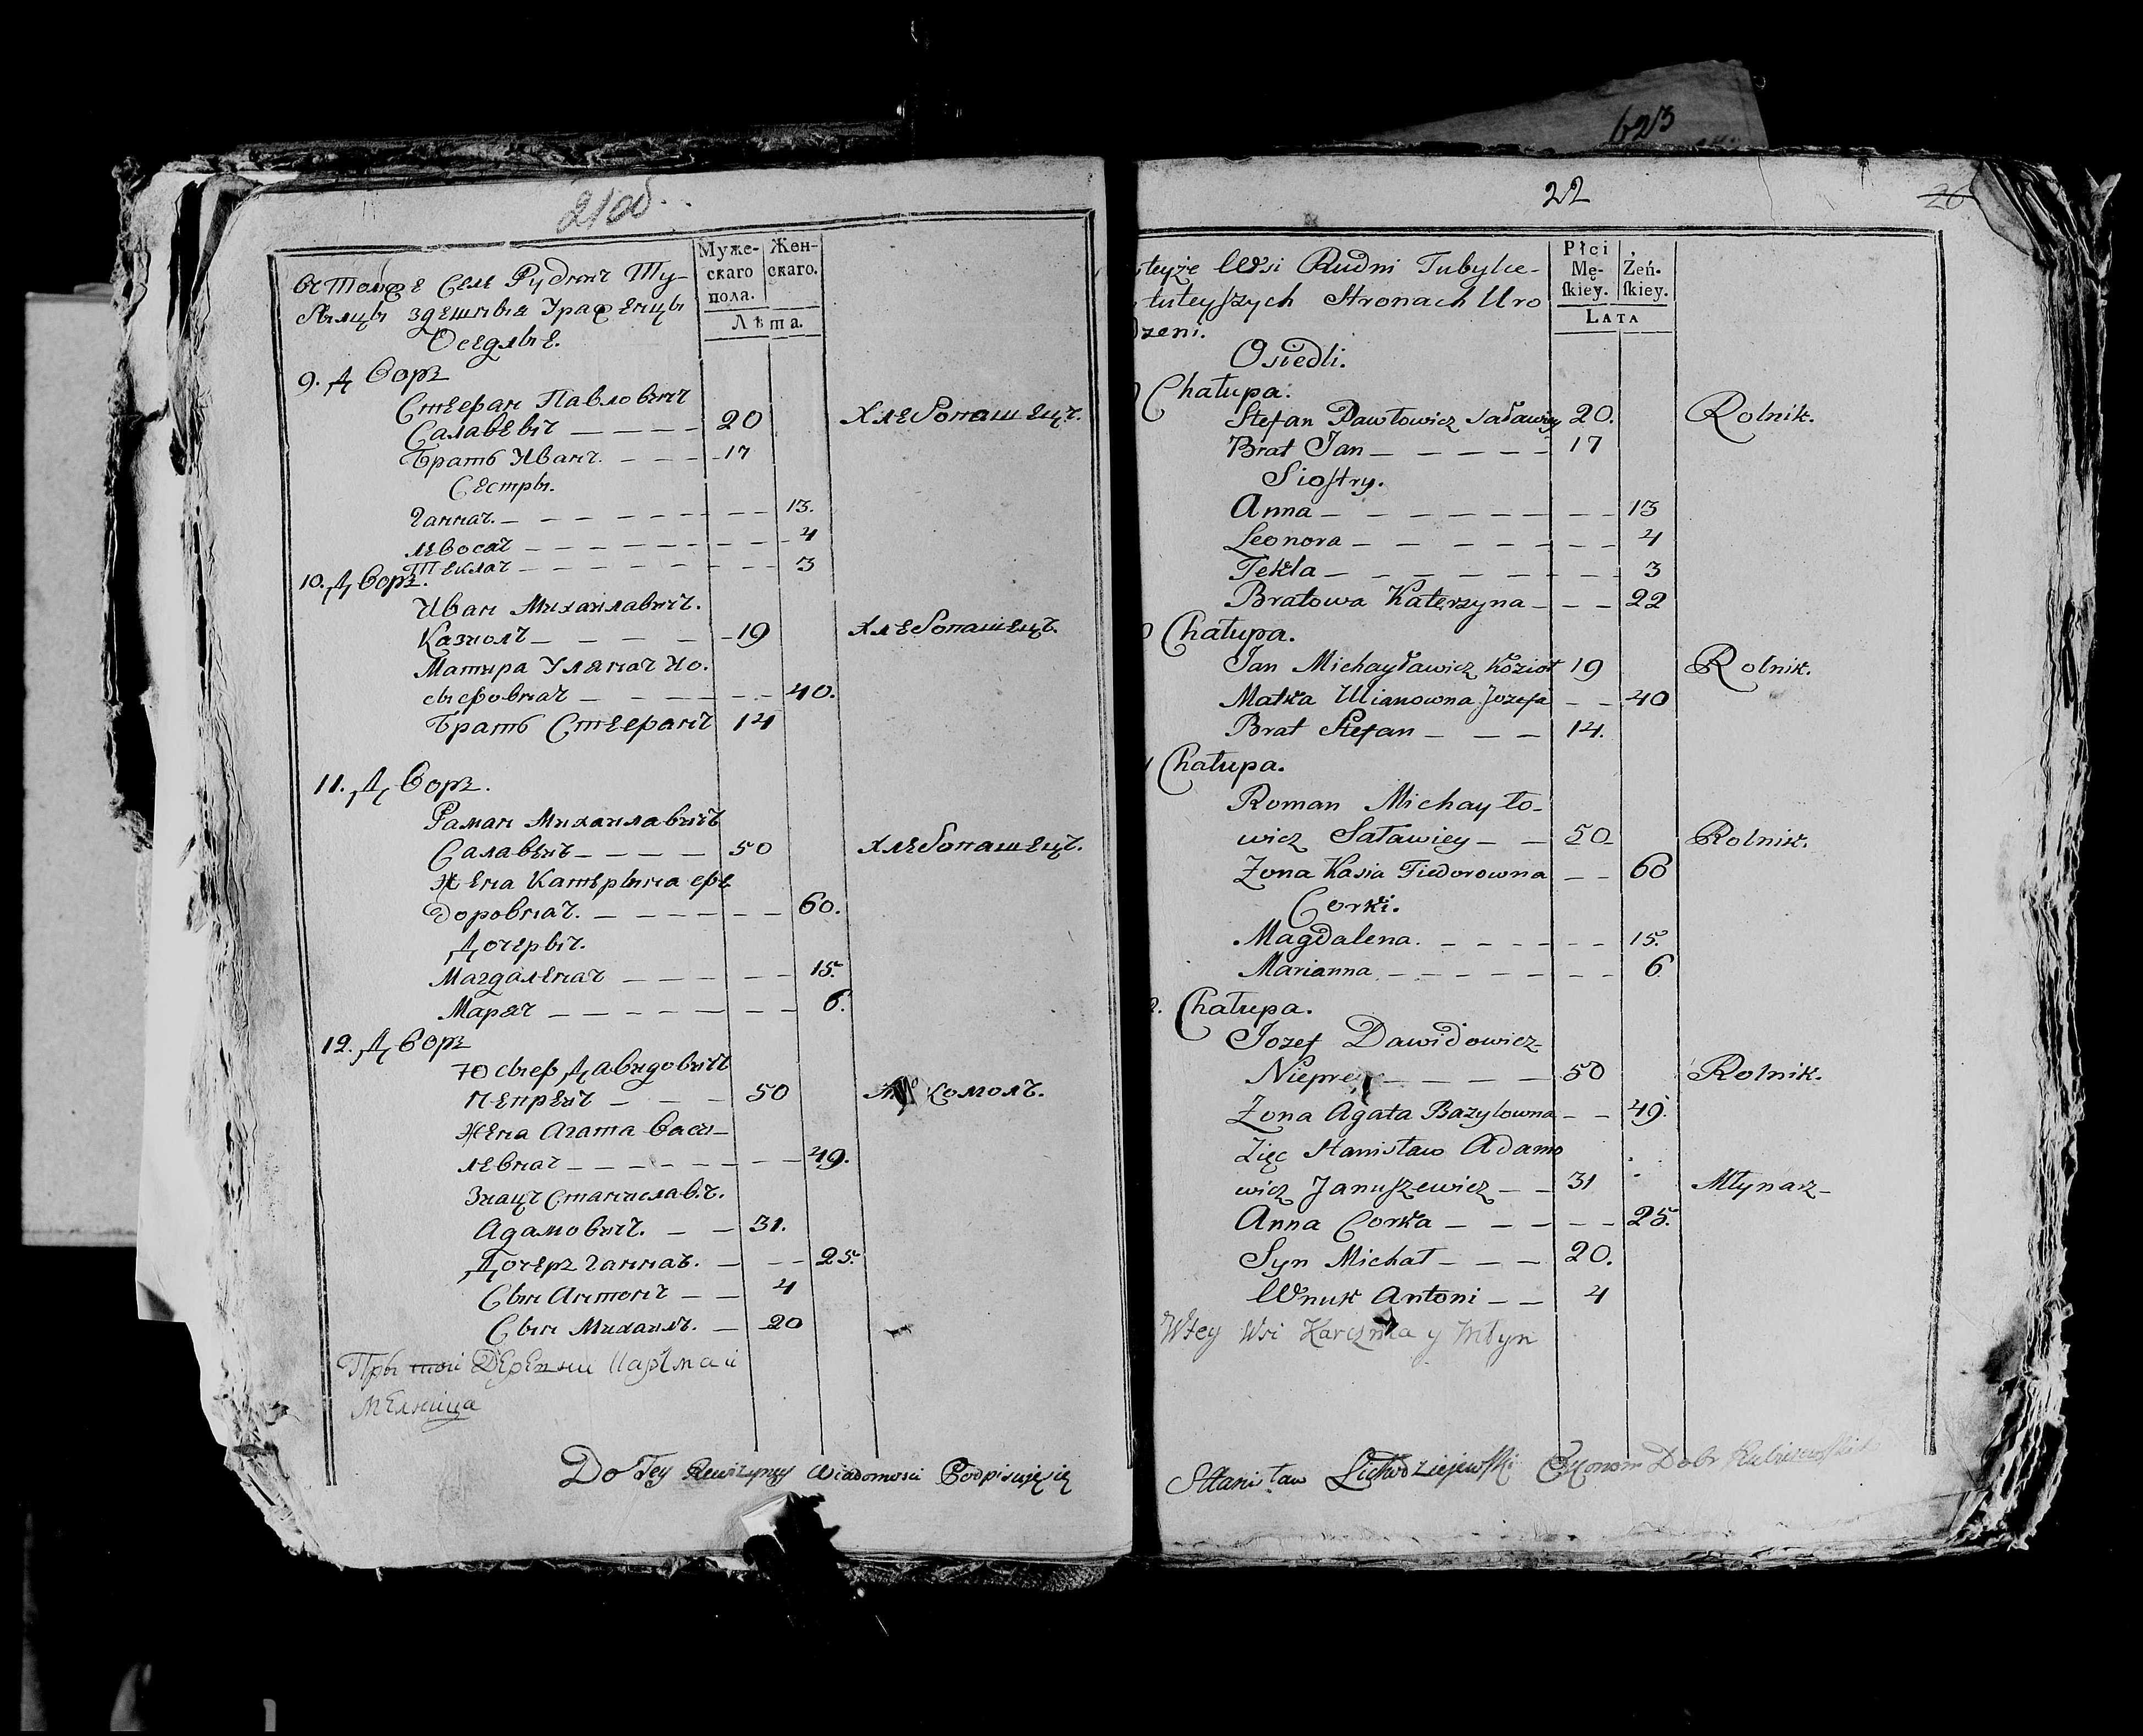 623
21об.
Муже- Жен-
скаго скаго.
пола.
Лѣта.
въ томже Селе Рудничъ Ту-
былцы здешныя Уражецы
Оседлые.
9. Дворъ
Стефан Павловичъ
Салавевъ — — — — 20 Хлебопашецъ.
Братъ Иванъ. — — — 17
Сестры.
Ганнаъ. — — — — — — 13.
Левосаъ — — — — — — 4
Теклаъ — — — — — — 3
10. Дворъ.
Иван Михаилавичъ.
Казиолъ — — — — 19 Хлебопашецъ.
Матыра Улянаъ Ио.
сыфовнаъ — — — — — 40.
Братъ Стефанъ 14
11. Дворъ.
Раман Михаилавичъ
Салавеиъ — — — — 50 Хлебопашецъ.
Жена Катерынна Фе
доровнаъ. — — — — — — 60.
Дочерыъ.
Магдаленаъ — — — — — 15.
Маряъ — — — — — — — 6.
12. Дворъ
Юсыф Давидовичъ
Непреиъ — — — 50 комолъ.
Жена Агата Васи—
левнаъ — — — — — — — 49.
Зиацъ Станиславъ.
Адамовичъ. — — 31.
Дочеръ Ганнаъ. — — — 25.
Сын Антонъ — — 4
Сын Михаилъ. — 20
Пры той Деревни Карчма и
Мелница
Do Tey Rewizyney Wiadomosci Podpisuję się
22
26
Płci
Mę- Żeń-
skiey. skiey.
LATA
teyże Wsi Rudni Tubylce-
tuteyszych Stronach Uro
dzeni.
Osiedli.
Chałupa.
Stefan Pawłowicz Saławiey 20. Rolnik.
Brat Jan — — — — — 17
Siostry.
Anna — — — — — — — — 13
Leonora — — — — — — — 4
Tekla — — — — — — — — 3
Bratowa Katerzyna — — — 22
Chałupa.
Jan Michayławicz Kozioł 19 Rolnik.
Matka Ulianowna Jozefa — — 40
Brat Stefan — — — 14.
Chałupa.
Roman Michayło-
wicz Saławiey — — 50 Rolnik.
Zona Kasia Fiedorowna — — 60
Corki.
Magdalena. — — — — — — 15.
Marianna. — — — — — — — 6
Chałupa.
Jozef Dawidowicz-
Niepre — — — — 50 Rolnik.
Zona Agata Bazylowna — — 49.
Zięc Stanisław Adamo
wicz Januszewicz — — 31 Młynarz-
Anna Corka — — — — — 25.
Syn Michał — — — 20.
Wnuk Antoni — — 4
W tey Wsi Karczma y Młyn
Stanisław Lichodziejewski Ekonom Dobr